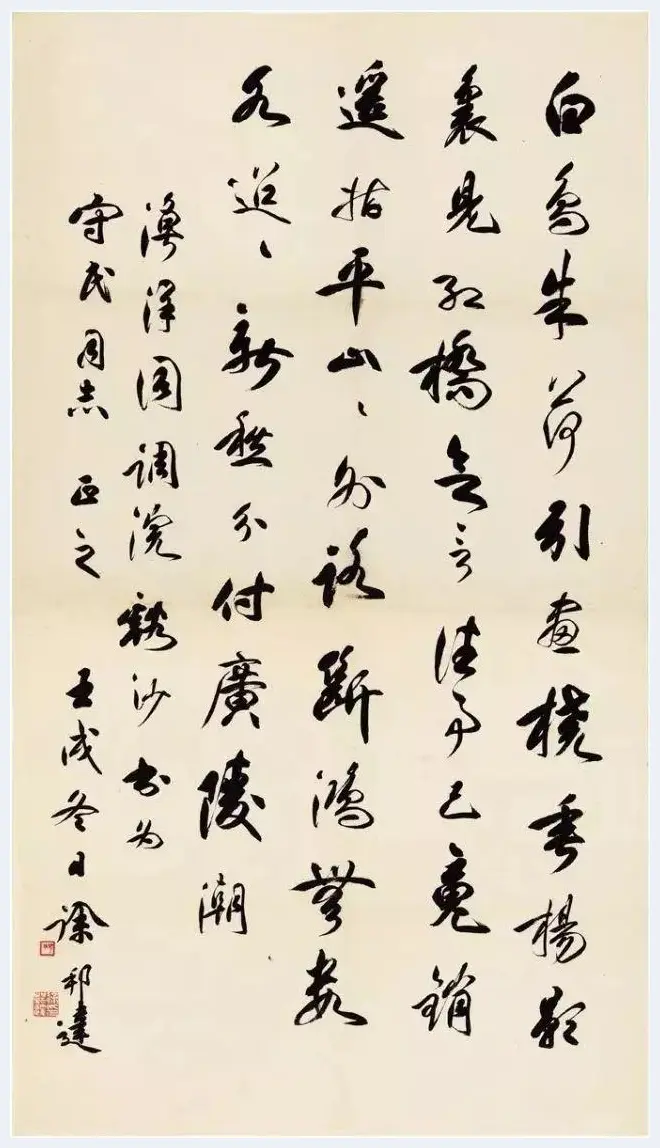 白鳥朱荷引畫橈垂楊影
裏見紅橋欲尋往事已魂銷
遥指平山々外路斷鴻無數
水迢々新愁分付廣陵潮
漁洋調浣谿沙書为
守民同志正之 壬戌冬日徐邦達